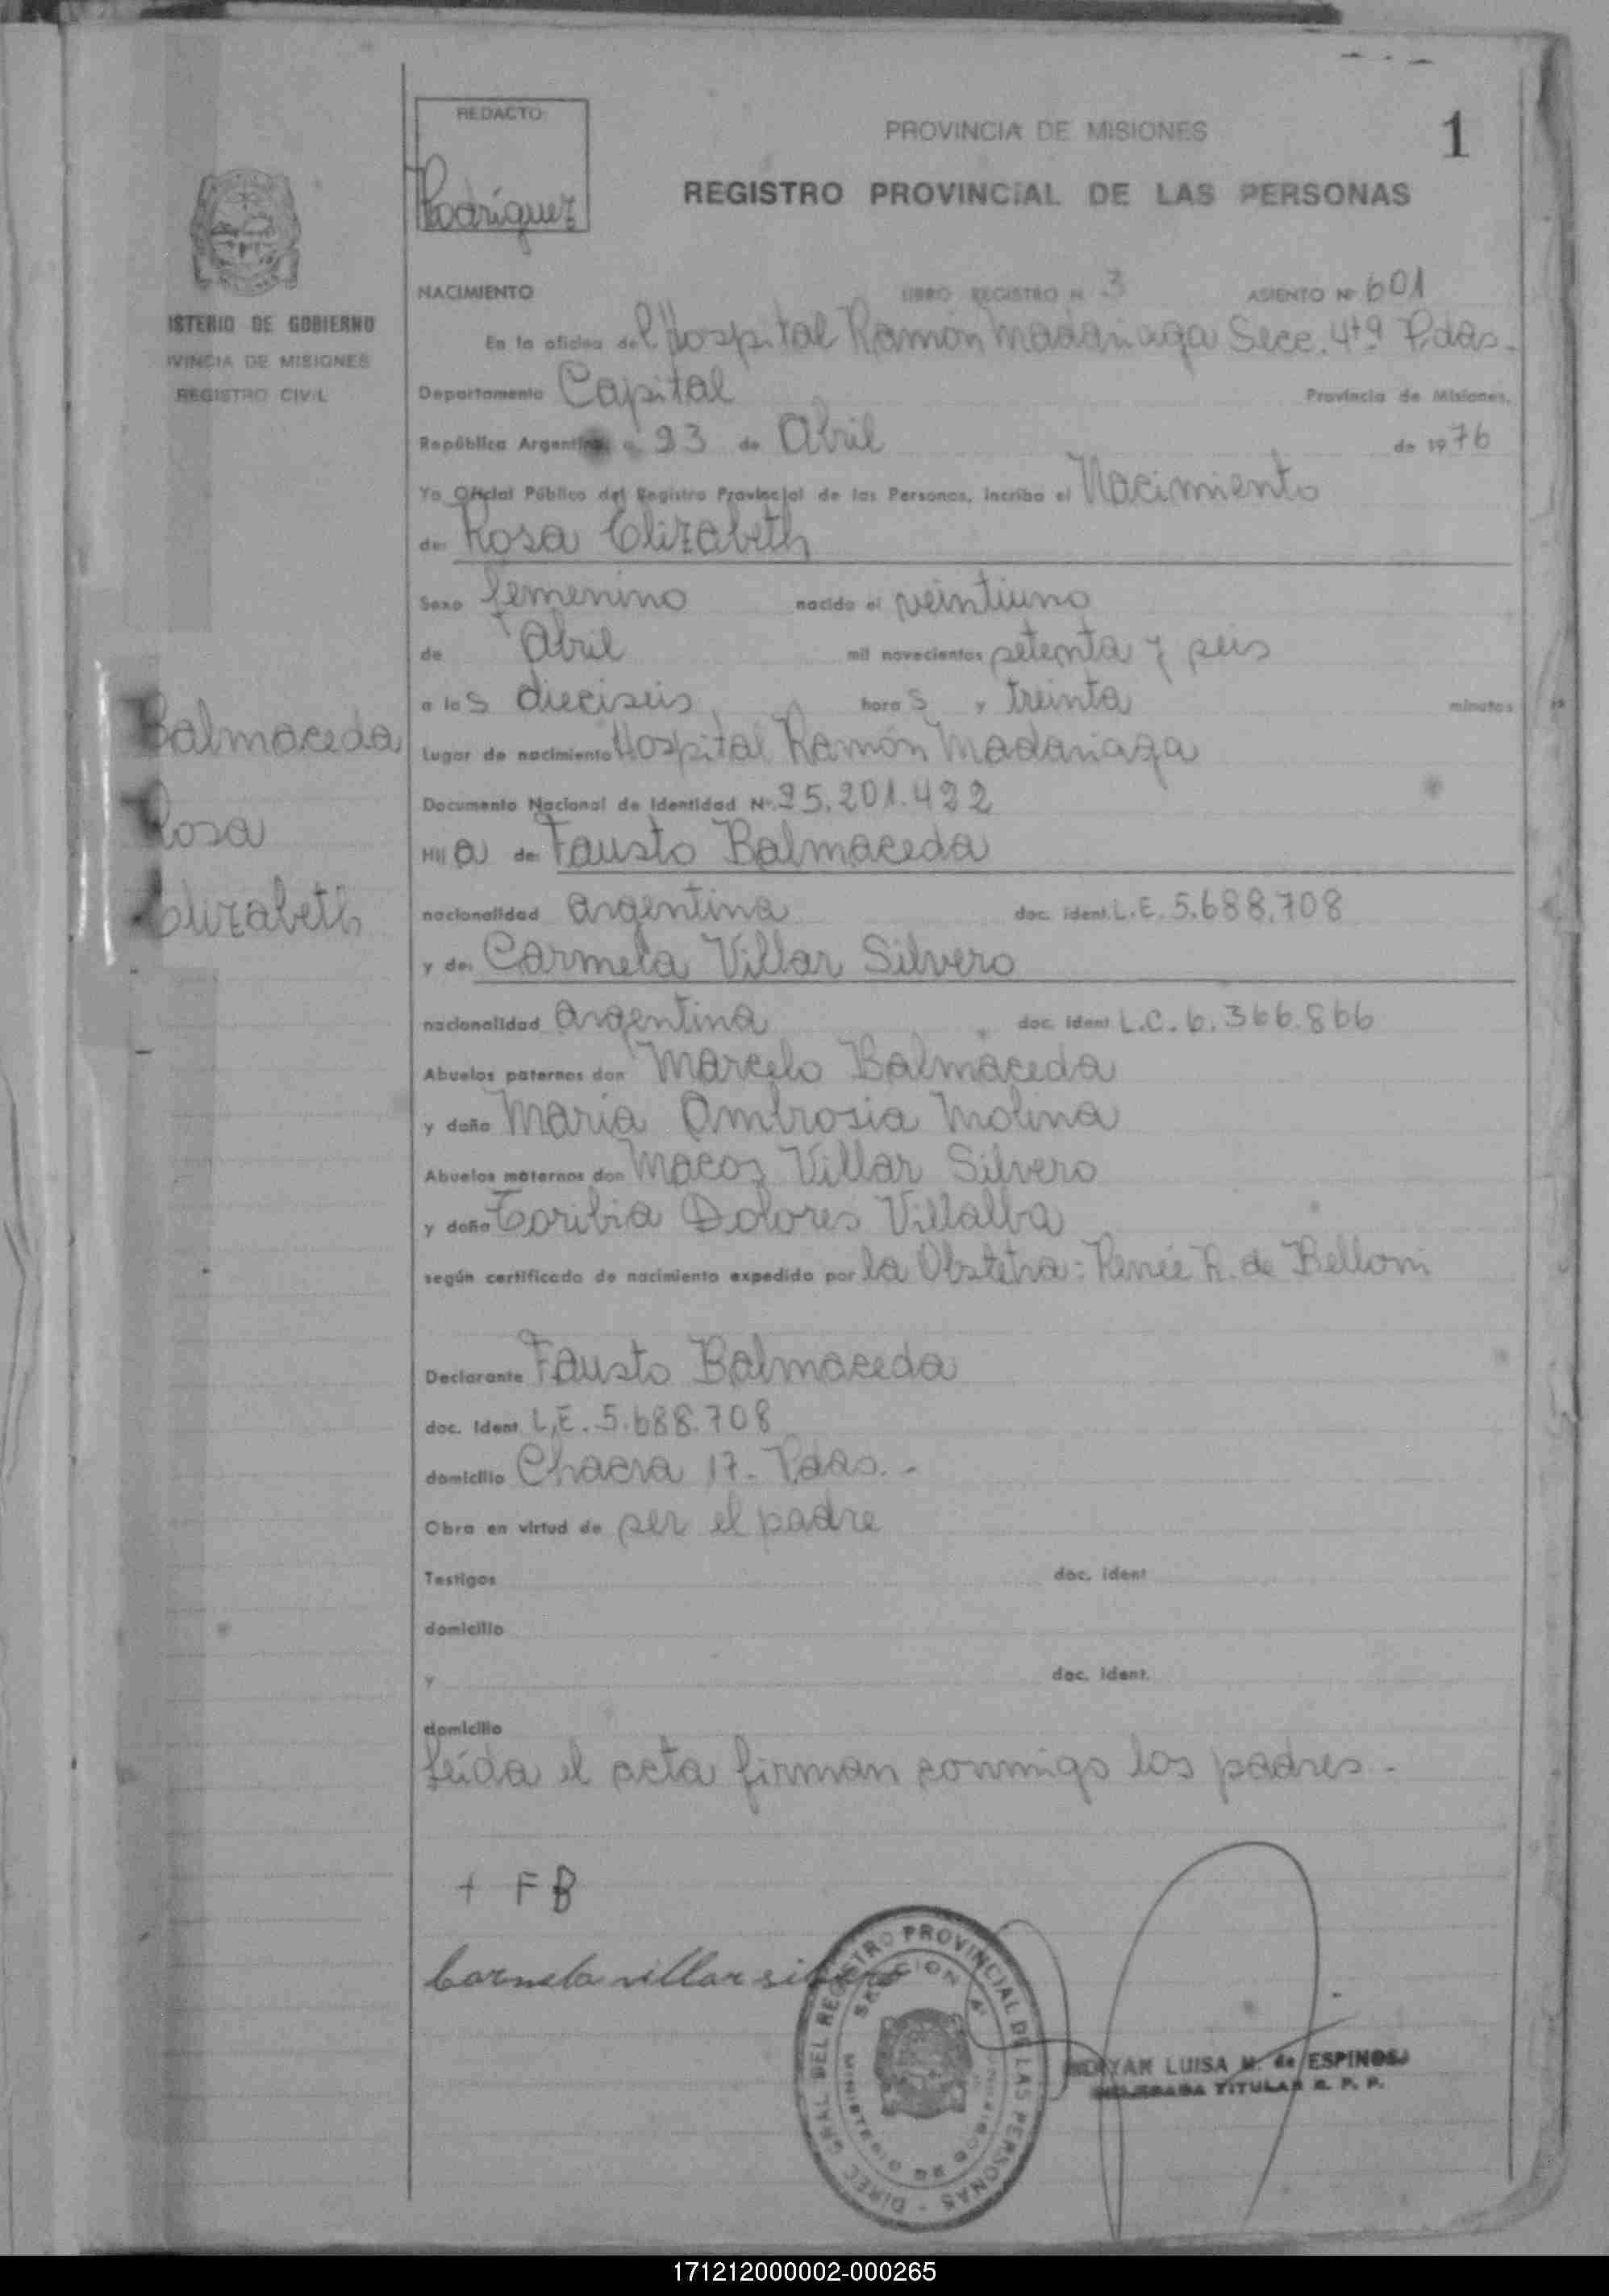 REDACTO:
Rodríguez
PROVINCIA DE MISIONES
1
REGISTRO PROVINCIAL DE LAS PERSONAS
ISTERIO DE GOBIERNO
IVINCIA DE MISIONES
REGISTRO CIVIL
NACIMIENTO LIBRO REGISTRO N 3 ASIENTO Nº 601
En la oficina del Hospital Ramón Madariaga Secc. 4tª Pdas.
Departamento Capital Provincia de Misiones,
República Argentina a 23 de Abril de 1976
Yo Oficial Público del Registro Provincial de las Personas, inscribo el Nacimiento
de: Rosa Elizabeth
Sexo femenino nacido el veintiuno
de Abril mil novecientos setenta y seis
a las dieciseis horas y treinta minutos
lugar de nacimiento Hospital Ramón Madariaga
Documento Nacional de Identidad Nº 25.201.422
Hij a de: Fausto Balmaceda
nacionalidad argentina doc. ident. L.E. 5.688.708
y de: Carmela Villar Silvero
nacionalidad argentina doc. ident L.C. 6.366.866
Abuelos paternos don Marcelo Balmaceda
y doña María Ambrosia Molina
Abuelos maternos don Macos Villar Silvero
y doña Toribia Dolores Villalba
según certificado de nacimiento expedido por la Obstetra: Renée R. de Belloni
Balmaceda
Rosa
Elizabeth
Declarante Fausto Balmaceda
doc. ident L.E. 5.688.708
domicilio Chacra 17- Pdas.-
Obra en virtud de ser el padre
Testigos doc. ident
domicilio
y doc. ident.
domicilio
Leída el acta firman conmigo los padres.-
+ FB
Carmela villar silvero
DIREC GRAL DEL REGISTRO PROVINCIAL DE LAS PERSONAS -
SECCION 4ª
MINISTERIO DE GOBIERNO
LUISA M. de ESPINOSA
TITULAR R. P. P.
171212000002-000265